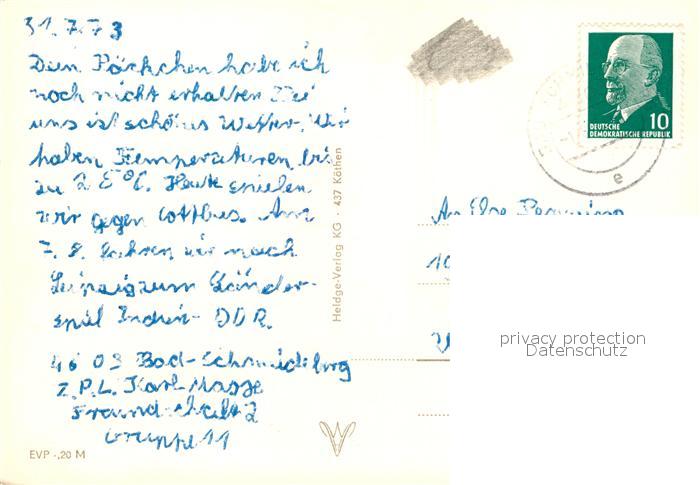 31.7.73
Dein Päckchen habe ich
noch nicht erhalten Bei
uns ist schönes Wetter. Wir
haben Temperaturen bis
zu 25°C. Heute spielen
wir gegen Cottbus. Am
7. 8. fahren wir nach
Leipzig zum Länder-
spiel Indien - DDR.
4603 Bad-Schmiedeberg
Z.P.L. Karl-Marx
Freundschaft 2
Gruppe 11
EVP -,20 M
Heldge-Verlag KG · 437 Köthen
10
DEUTSCHE
DEMOKRATISCHE REPUBLIK
e
An Else
10
privacy protection
Datenschutz